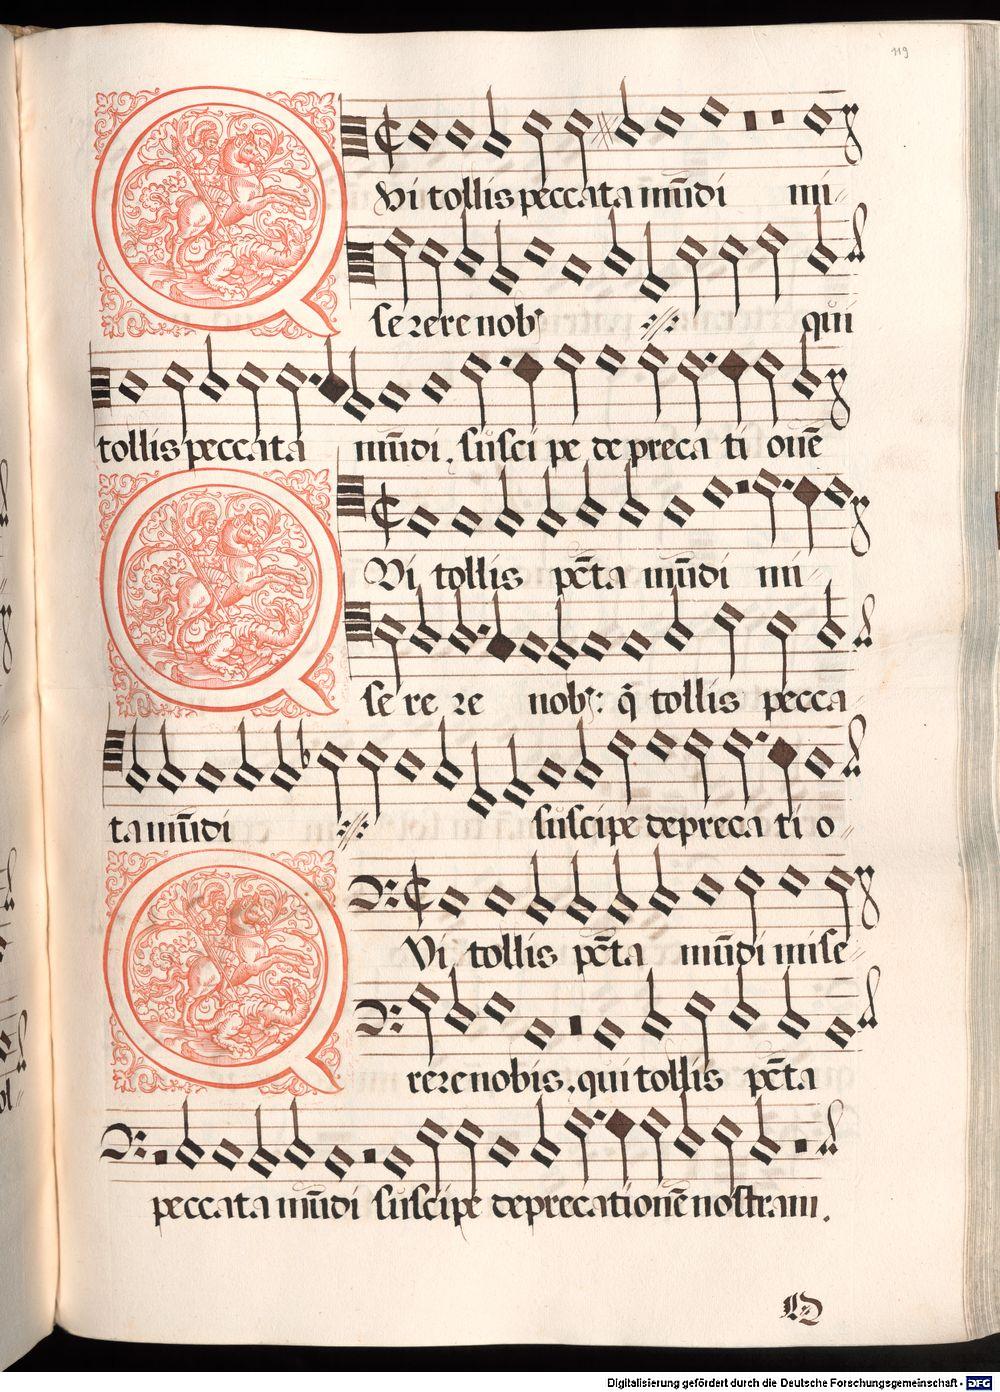 119
QVi tollis peccata mũdi mi-
serere nob⁹ :||: qui
tollis peccata mũdi . susci pe depreca ti onẽ
QVi tollis pc̃ta mũdi mi-
se re re nob⁹: q̃ tollis pecca
ta mũdi :||: suscipe depreca ti o-
QVi tollis pc̃ta mũdi mise-
rere nobis . qui tollis pc̃ta
peccata mũdi suscipe deprecationẽ nostram .
Digitalisierung gefördert durch die Deutsche Forschungsgemeinschaft - DFG